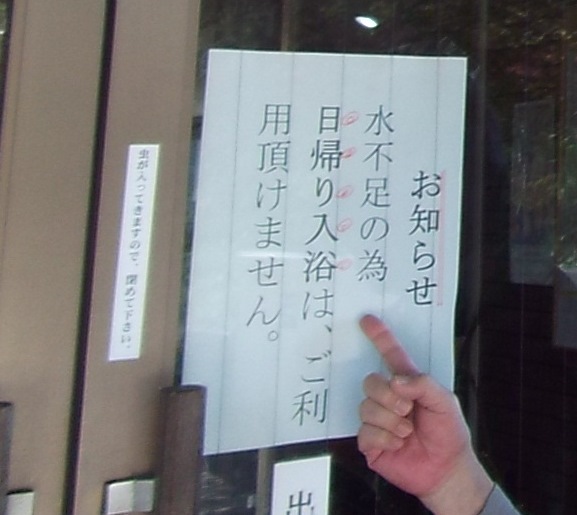 お知らせ
水不足の為
日帰り入浴は、ご利
用頂けません。
虫が入ってきますので、閉めて下さい。
出